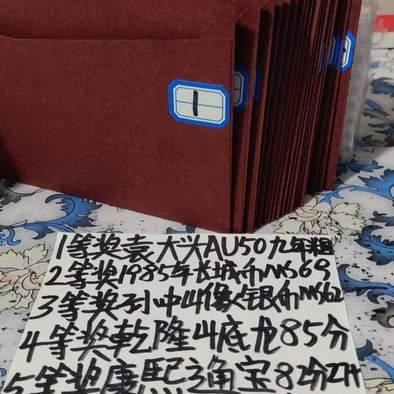 1
1等奖袁大头AU50九年粗
2等奖1985年长城币MS69
3等奖孙中山像银币MS62
4等奖乾隆山底龙85分
5等奖康熙通宝82分